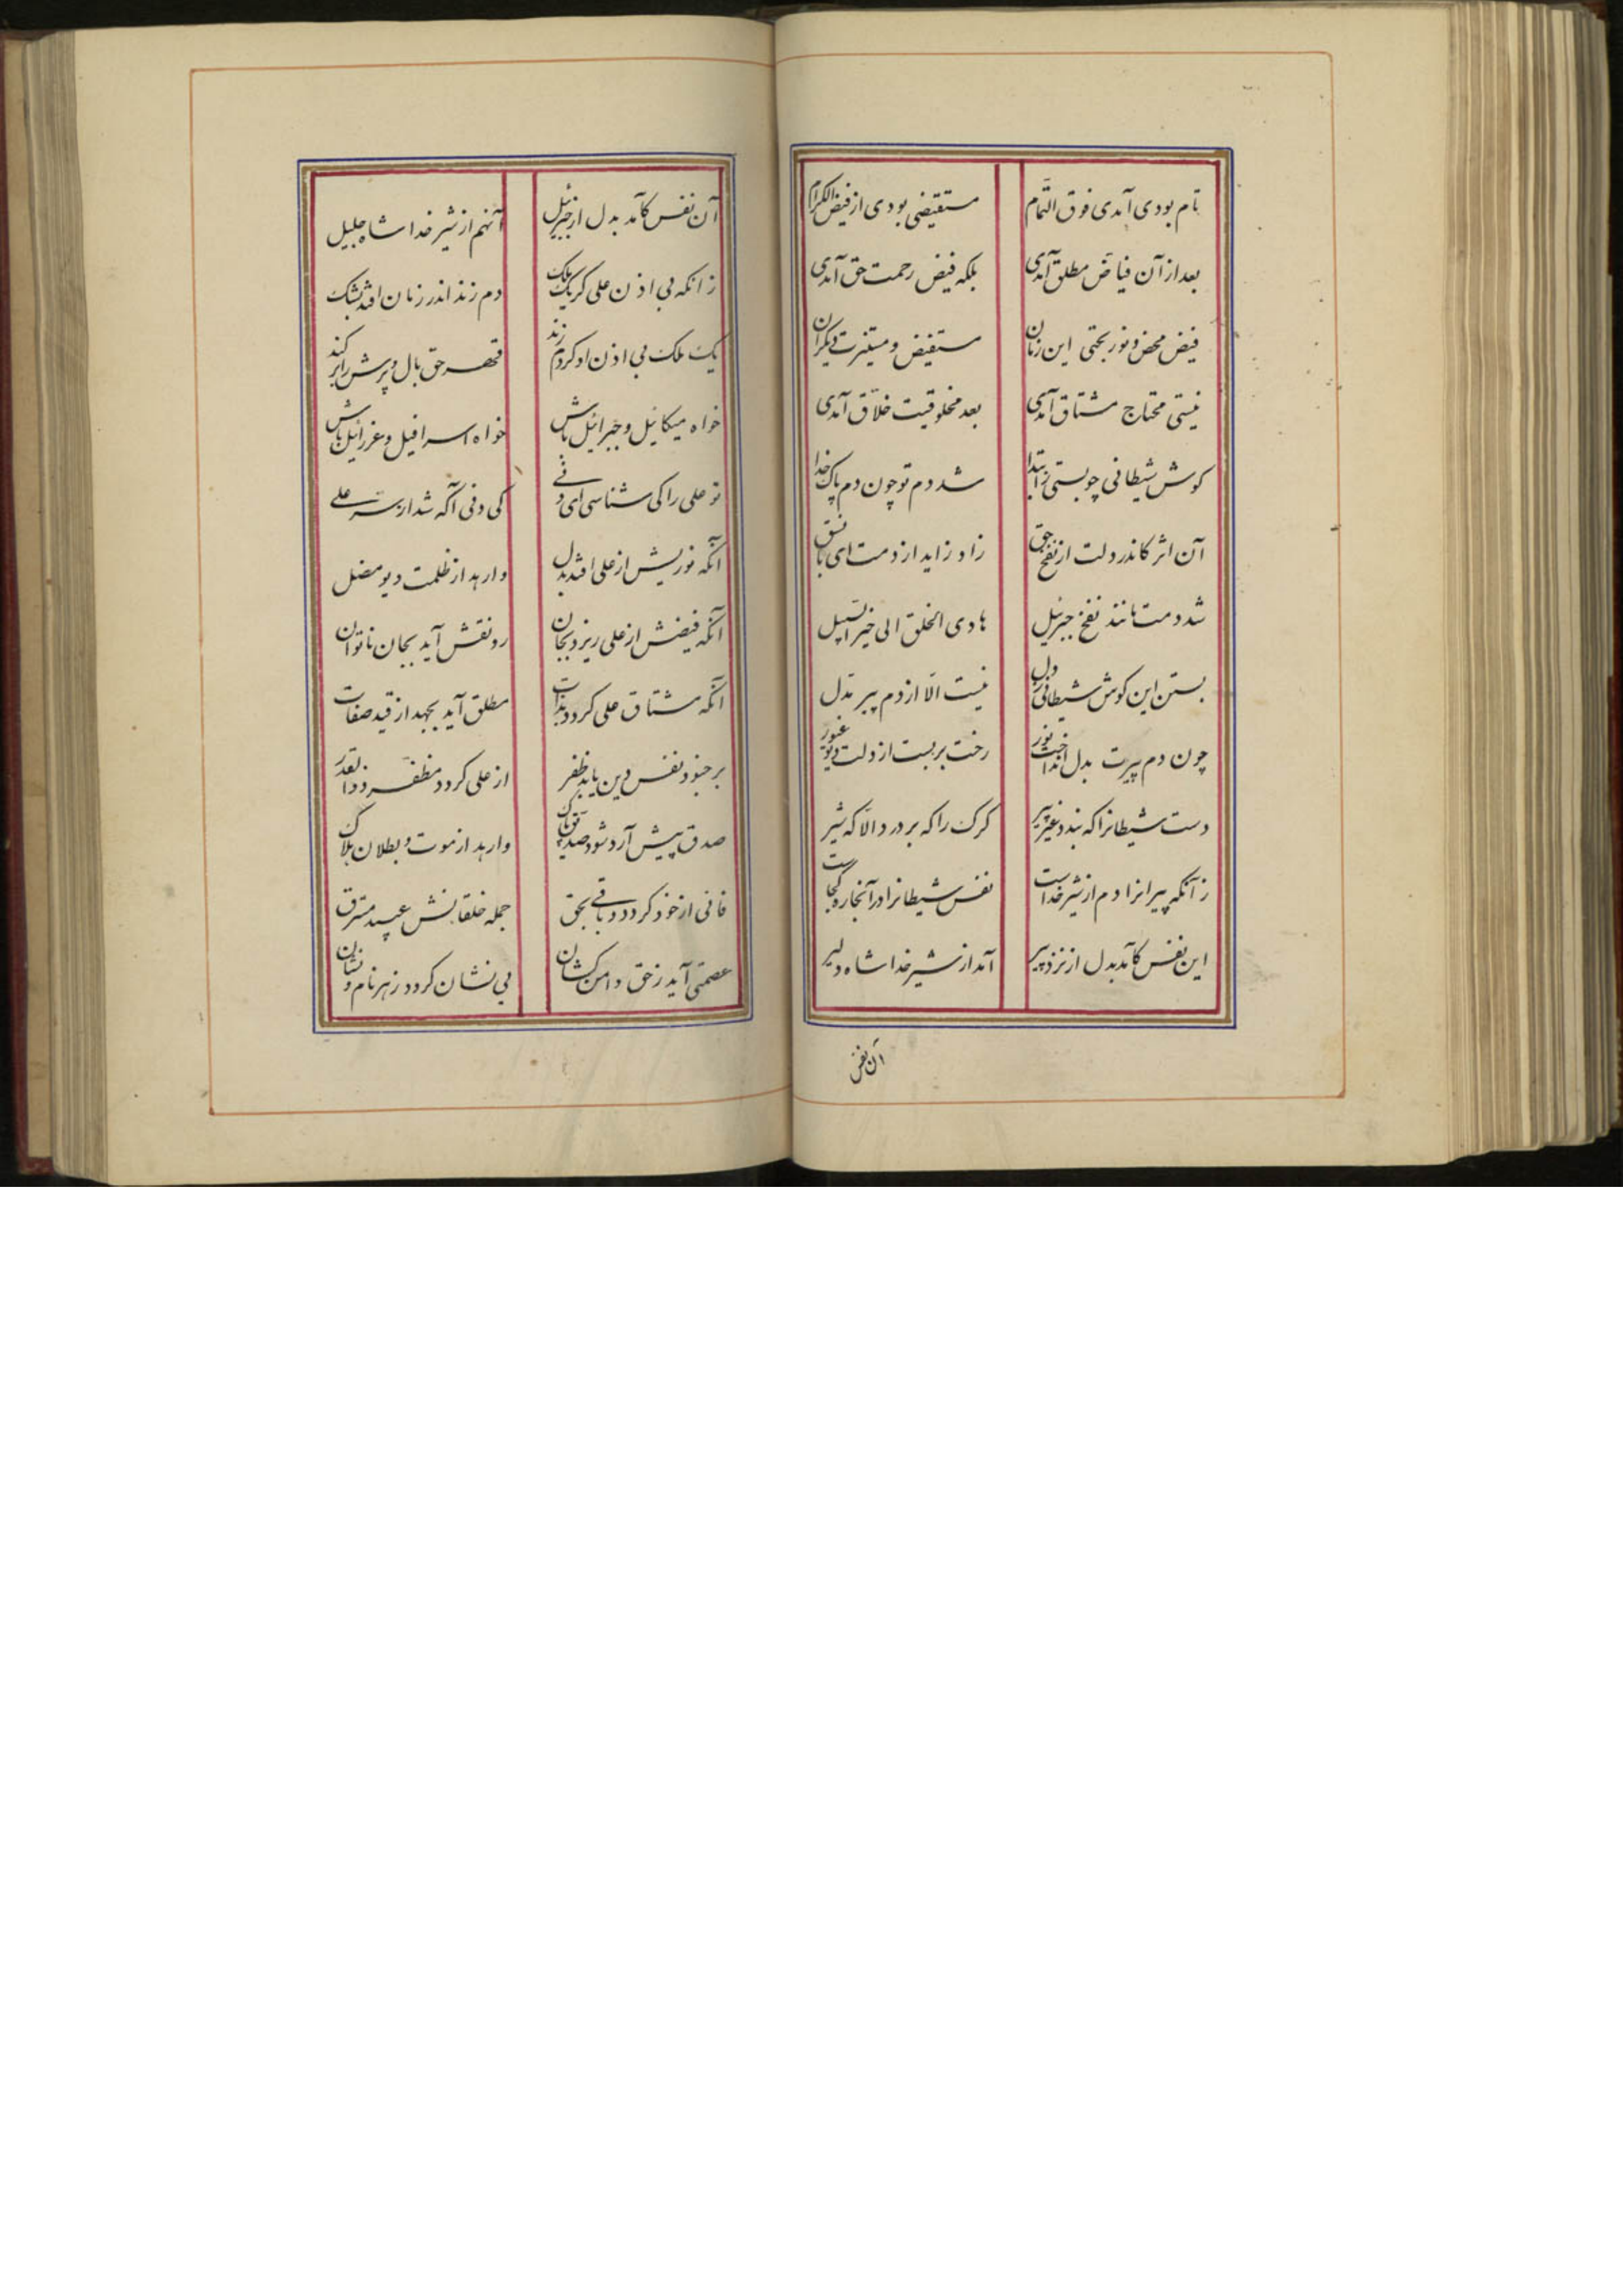 تام بودی آمدی فوق التمام مستفیضی بودی از فیض الکرام
بعد از آن فیاض مطلق آمدی بلکه فیض رحمت حق آمدی
فیض محض و نور بحتی این زمان مستفیض و مستنیرت دیگران
نیستی محتاج مشتاق آمدی بعد مخلوقیت خلّاق آمدی
کوش شیطانی چو بستی ز ابتدا شد دم تو چون دم پاک خدا
آن اثر کاندر دلت از نفخ حق زاد زاید از دمت ای با نسق
شد دمت مانند نفخ جبرئیل هادی الخلق الی خیر السبیل
بستن این کوش شیطانی ز دل نیست الّا از دم پیر مدل
چون دم پیرت بدل انداخت نور رخت بربست از دلت دیو غیور
دست شیطانرا که بندد غیر پیر کرک را که بر درد الّا که شیر
زآنکه پیرانرا دم از شیر خداست نفس شیطانرا در آنجا ره کجاست
این نفس کآمد بدل از نزد پیر آمد از شیر خدا شاه دلیر
آن نفس
آن نفس کآمد بدل از جبرئیل آنهم از شیر خدا شاه جلیل
زانکه بی اذن علی کر یک ملک دم زند اندر زمان افتد بشک
یک ملک بی اذن او کر دم زند قهر حق بال و پرش را بر کند
خواه میکائیل و جبرائیل باش خواه اسرافیل و عزرائیل باش
تو علی را کی شناسی ای دنی کی دنی آکه شد از سر علی
آنکه نوریش از علی افتد بدل وارهد از ظلمت دیو مضل
آنکه فیضش از علی ریزد بجان رونقش آید بجان ناتوان
آنکه مشتاق علی کردد بذات مطلق آید بجهد از قید صفات
بر جنود نفس دین یابد ظفر از علی کردد مظفر
صدق پیش آرد شود وارهد از موت و بطلان هلاک
فانی از خود کردد و باقی بحق جمله خلقانش
عصمتی آید ز حق دامن کشان بی نشان کردد ز هر نام و نشان